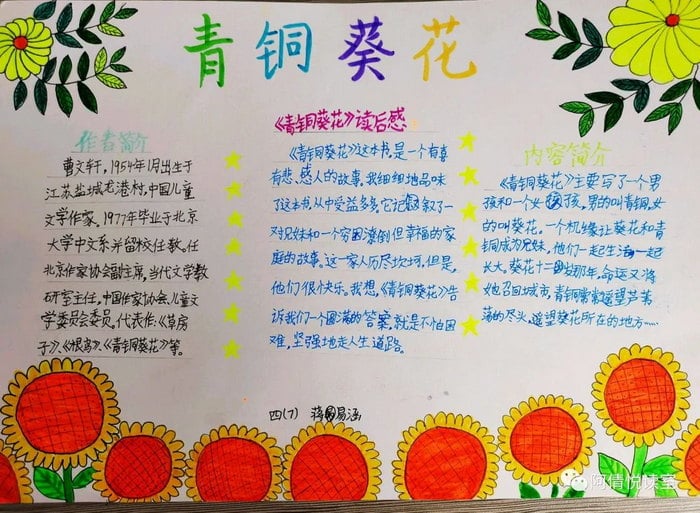 青铜葵花
作者简介
曹文轩,1954年1月出生于
江苏盐城龙港村,中国儿童
文学作家,1977年毕业于北京
大学中文系并留校任教。任
北京作家协会副主席,当代文学教
研室主任,中国作家协会儿童文
学委员会委员,代表作:《草房
子》、《根鸟》、《青铜葵花》等。
《青铜葵花》读后感
《青铜葵花》这本书,是一个有喜
有悲、感人的故事。我细细地品味
了这本书,从中受益多多,它记叙了一
对兄妹和一个穷困潦倒但幸福的家
庭的故事。这一家人历尽坎坷,但是,
他们很快乐。我想,《青铜葵花》告
诉我们一个圆满的答案,就是不怕困
难,坚强地走人生道路。
内容简介
《青铜葵花》主要写了一个男
孩和一个女孩,男的叫青铜,女
的叫葵花。一个机缘让葵花和青
铜成为兄妹,他们一起生活一起
长大。葵花十二岁那年,命运又将
她召回城市,青铜常常遥望芦苇
荡的尽头,遥望葵花所在的地方……
四(7) 蒋易涵
阿倩悦味室